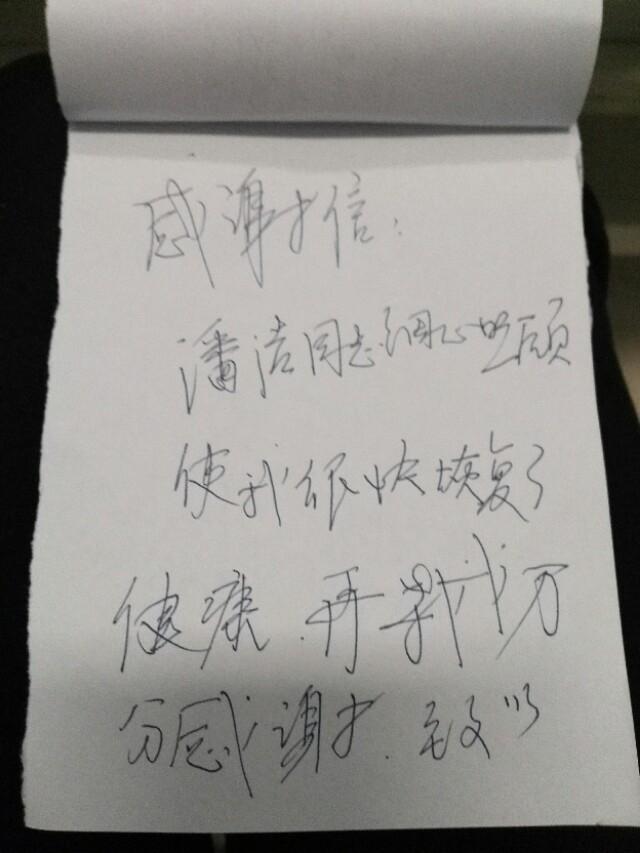 感谢信:
潘洁同志细心照顾
使我很快恢复了
健康.再 我万
分感谢.致以